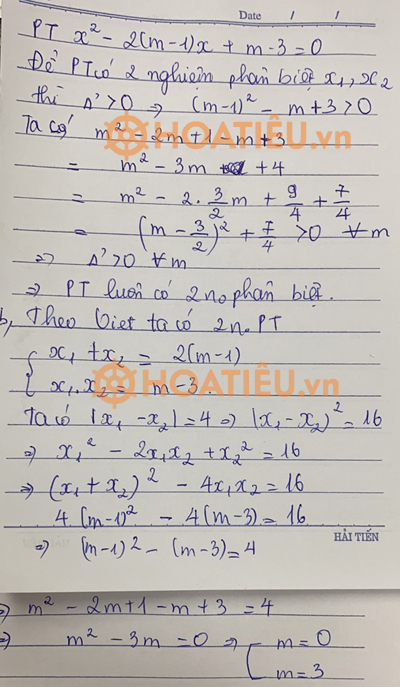 Date / /
PT x² - 2(m-1)x + m-3 = 0
Để PT có 2 nghiệm phân biệt x₁, x₂
thì Δ' > 0 => (m-1)² - m+3 > 0
Ta có m² - 2m+1 - m+3
= m² - 3m + 4
= m² - 2. 3/2 m + 9/4 + 7/4
= (m - 3/2)² + 7/4 > 0 ∀m
=> Δ' > 0 ∀m
=> PT luôn có 2 no phân biệt.
b, Theo Viet ta có 2 no PT
{ x₁ + x₂ = 2(m-1)
{ x₁.x₂ = m-3.
Ta có |x₁ - x₂| = 4 => |x₁ - x₂|² = 16
=> x₁² - 2x₁x₂ + x₂² = 16
=> (x₁ + x₂)² - 4x₁x₂ = 16
4 (m-1)² - 4(m-3) = 16
=> (m-1)² - (m-3) = 4
HẢI TIẾN
=> m² - 2m+1 - m+3 = 4
=> m² - 3m = 0 => [ m = 0
[ m = 3
HOATIÊU.vn
HOATIÊU.vn